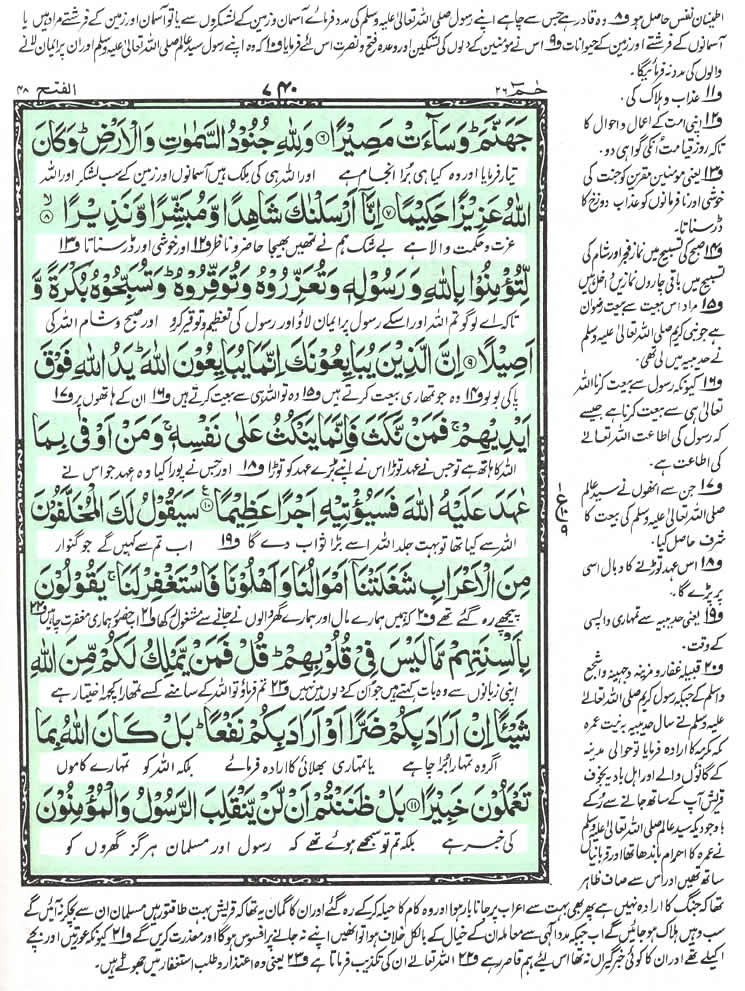 اطمینان نفس حاصل ہو و۸ وہ قادر ہے جس سے چاہے اپنے رسول صلی اللہ تعالیٰ علیہ وسلم کی مدد فرمائے آسمان و زمین کے لشکروں سے یا تو آسمان اور زمین کے فرشتے مراد ہیں یا
آسمانوں کے فرشتے اور زمین کے حیوانات و۹ اس نے مؤمنین کے دلوں کی تسکین اور وعدہ فتح و نصرت اس لئے فرمایا و۱۰ کہ وہ اپنے رسول سید عالم صلی اللہ تعالیٰ علیہ وسلم اور ان پر ایمان لانے
والوں کی مدد نہ فرمائے گا۔
حٰمٓ ۲۶
۷۴۰
الفتح ۴۸
جَهَنَّمَ ؕ وَسَآءَتْ مَصِیْرًا ۶ وَلِلّٰهِ جُنُوْدُ السَّمٰوٰتِ وَالْاَرْضِ ؕ وَكَانَ
تیار فرمایا اور وہ کیا ہی بُرا انجام ہے اور اللہ ہی کی ملک ہیں آسمانوں اور زمین کے سب لشکر اور اللہ
اللّٰهُ عَزِیْزًا حَكِیْمًا ۷ اِنَّاۤ اَرْسَلْنٰكَ شَاهِدًا وَّمُبَشِّرًا وَّنَذِیْرًا ۸
عزت و حکمت والا ہے بے شک ہم نے تمھیں بھیجا حاضر و ناظر و۱۲ اور خوشی اور ڈر سناتا و۱۳
لِّتُؤْمِنُوْا بِاللّٰهِ وَرَسُوْلِهٖ وَتُعَزِّرُوْهُ وَتُوَقِّرُوْهُ ؕ وَتُسَبِّحُوْهُ بُكْرَةً وَّ
تاکہ اے لوگو تم اللہ اور اسکے رسول پر ایمان لاؤ اور رسول کی تعظیم و توقیر کرو اور صبح و شام اللہ کی
اَصِیْلًا ۹ اِنَّ الَّذِیْنَ یُبَایِعُوْنَكَ اِنَّمَا یُبَایِعُوْنَ اللّٰهَ ؕ یَدُ اللّٰهِ فَوْقَ
پاکی بولو و۱۴ وہ جو تمھاری بیعت کرتے ہیں و۱۵ وہ تو اللہ ہی سے بیعت کرتے ہیں و۱۶ ان کے ہاتھوں پر و۱۷
اَیْدِیْهِمْ ۚ فَمَنْ نَّكَثَ فَاِنَّمَا یَنْكُثُ عَلٰی نَفْسِهٖ ۚ وَمَنْ اَوْفٰی بِمَا
اللہ کا ہاتھ ہے تو جس نے عہد توڑا اس نے اپنے بڑے عہد کو توڑا و۱۸ اور جس نے پورا کیا وہ عہد جو اس نے
عٰهَدَ عَلَیْهُ اللّٰهَ فَسَیُؤْتِیْهِ اَجْرًا عَظِیْمًا ۱۰ سَیَقُوْلُ لَكَ الْمُخَلَّفُوْنَ
اللہ سے کیا تھا تو بہت جلد اللہ اسے بڑا ثواب دے گا و۱۹ اب تم سے کہیں گے جو گنوار
مِنَ الْاَعْرَابِ شَغَلَتْنَاۤ اَمْوَالُنَا وَاَهْلُوْنَا فَاسْتَغْفِرْلَنَا ۚ یَقُوْلُوْنَ
پیچھے رہ گئے تھے و۲۰ کہ ہمیں ہمارے مال اور ہمارے گھر والوں نے جانے سے مشغول رکھا و۲۱ اب حضور ہماری مغفرت چاہیں و۲۲
بِاَلْسِنَتِهِمْ مَّا لَیْسَ فِیْ قُلُوْبِهِمْ ؕ قُلْ فَمَنْ یَّمْلِكُ لَكُمْ مِّنَ اللّٰهِ
اپنی زبانوں سے وہ بات کہتے ہیں جو ان کے دلوں میں نہیں و۲۳ تم فرماؤ تو اللہ کے سامنے کسے تمھارا کچھ اختیار ہے
شَیْـًٔا اِنْ اَرَادَ بِكُمْ ضَرًّا اَوْ اَرَادَ بِكُمْ نَفْعًا ؕ بَلْ كَانَ اللّٰهُ بِمَا
اگر وہ تمہارا بُرا چاہے یا تمہاری بھلائی کا ارادہ فرمائے بلکہ اللہ کو تمہارے کاموں
تَعْمَلُوْنَ خَبِیْرًا ۱۱ بَلْ ظَنَنْتُمْ اَنْ لَّنْ یَّنْقَلِبَ الرَّسُوْلُ وَالْمُؤْمِنُوْنَ
کی خبر ہے بلکہ تم تو سمجھے ہوئے تھے کہ رسول اور مسلمان ہرگز گھروں کو
و۱۱ عذاب و ہلاک کی۔
و۱۲ اپنی امت کے اعمال و احوال کا
تاکہ روز قیامت اُنکی گواہی دو۔
و۱۳ یعنی مؤمنین مقرین کو جنت کی
خوشی اور نافرمانوں کو عذاب دوزخ کا
ڈر سناتا۔
و۱۴ صبح کی تسبیح میں نماز فجر اور شام کی
تسبیح میں باقی چاروں نمازیں داخل ہیں
و۱۵ مراد اس بیعت سے بیعت رضوان
ہے جو نبی کریم صلی اللہ تعالیٰ علیہ وسلم
نے حدیبیہ میں لی تھی۔
و۱۶ کیونکہ رسول سے بیعت کرنا اللہ
تعالیٰ ہی سے بیعت کرنا ہے جیسے
کہ رسول کی اطاعت اللہ تعالےٰ
کی اطاعت ہے۔
و۱۷ جن سے انھوں نے سید عالم
صلی اللہ تعالیٰ علیہ وسلم کی بیعت کا
شرف حاصل کیا۔
و۱۸ اس عہد توڑنے کا وبال اسی
پر پڑے گا۔
و۱۹ یعنی حدیبیہ سے تمہاری واپسی
کے وقت۔
و۲۰ قبیلہ غفار و مزینہ و جہینہ و اشجع
و اسلم کے جبکہ رسول کریم صلی اللہ تعالےٰ
علیہ وسلم نے سال حدیبیہ بہ نیت عمرہ
مکہ مکرمہ کا ارادہ فرمایا تو حوالی مدینہ
کے گاؤں والے اور اہل بادیہ بخوف
قریش آپ کے ساتھ جانے سے رُکے
باوجودیکہ سید عالم صلی اللہ تعالیٰ علیہ وسلم
نے عمرہ کا احرام باندھا تھا اور قربانیاں
ساتھ تھیں اور اس سے صاف ظاہر
تھا کہ جنگ کا ارادہ نہیں ہے پھر بھی بہت سے اعراب پر جانا بار ہوا اور وہ کام کا حیلہ کرکے رہ گئے اور ان کا گمان یہ تھا کہ قریش بہت طاقتور ہیں مسلمان ان سے بچکر نہ آئیں گے
سب وہیں ہلاک ہو جائیں گے اب جبکہ مدد الٰہی سے معاملہ ان کے خیال کے بالکل خلاف ہوا تو انھیں اپنے نہ جانے پر افسوس ہوگا اور معذرت کریں گے و۲۱ کیونکہ عورتیں اور بچے
اکیلے تھے اور ان کا کوئی خبر گیراں نہ تھا اس لئے ہم قاصر رہے و۲۲ اللہ تعالےٰ ان کی تکذیب فرماتا ہے و۲۳ یعنی وہ اعتذار و طلب استغفار میں جھوٹے ہیں۔